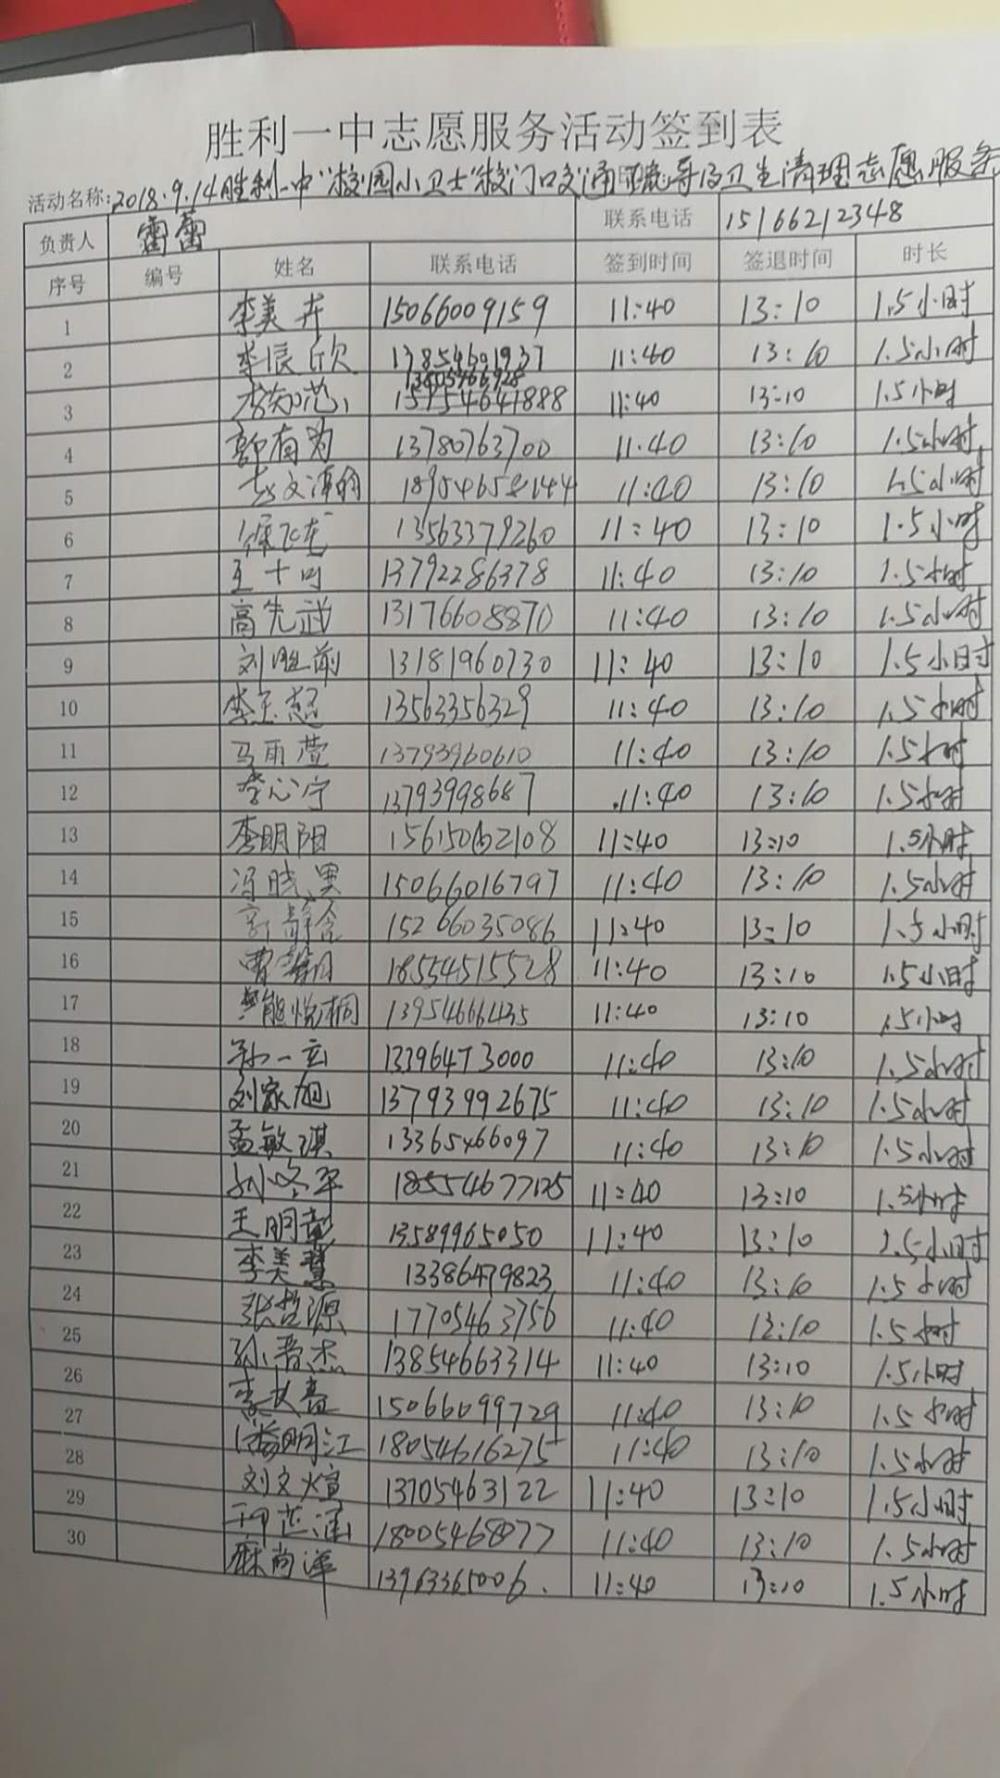 胜利一中志愿服务活动签到表
活动名称:2018.9.14胜利一中"校园小卫士"校门口交通疏导及卫生清理志愿服务
负责人 雷蕾 联系电话 15166212348
序号 编号 姓名 联系电话 签到时间 签退时间 时长
1 李美卉 15066009159 11:40 13:10 1.5小时
2 李辰欣 13854601937 11:40 13:10 1.5小时
13805466928
3 李知范 15154641888 11:40 13:10 1.5小时
4 郭有为 13780763700 11:40 13:10 1.5小时
5 11:40 13:10 1.5小时
6 徐飞龙 13563379260 11:40 13:10 1.5小时
7 13792286378 11:40 13:10 1.5小时
8 高先武 13176608870 11:40 13:10 1.5小时
9 刘胜前 13181960730 11:40 13:10 1.5小时
10 李玉超 13563356329 11:40 13:10 1.5小时
11 马雨萱 13793960610 11:40 13:10 1.5小时
12 李心宁 13793998687 11:40 13:10 1.5小时
13 李明阳 11:40 13:10 1.5小时
14 冯晓果 15066016797 11:40 13:10 1.5小时
15 郭静含 15266035086 11:40 13:10 1.5小时
16 18554515528 11:40 13:10 1.5小时
17 熊悦桐 13954666435 11:40 13:10 1.5小时
18 孙一玄 13396473000 11:40 13:10 1.5小时
19 刘家旭 13793992675 11:40 13:10 1.5小时
20 孟敏琪 13365466097 11:40 13:10 1.5小时
21 11:40 13:10 1.5小时
22 王明彰 13589965050 11:40 13:10 1.5小时
23 李美慧 13386479823 11:40 13:10 1.5小时
24 张哲源 17705463756 11:40 13:10 1.5小时
25 孙晋杰 13854663314 11:40 13:10 1.5小时
26 15066099729 11:40 13:10 1.5小时
27 潘明江 18054616275 11:40 13:10 1.5小时
28 刘文煊 13705463122 11:40 13:10 1.5小时
29 18005468077 11:40 13:10 1.5小时
30 麻尚泽 13963365006. 11:40 13:10 1.5小时